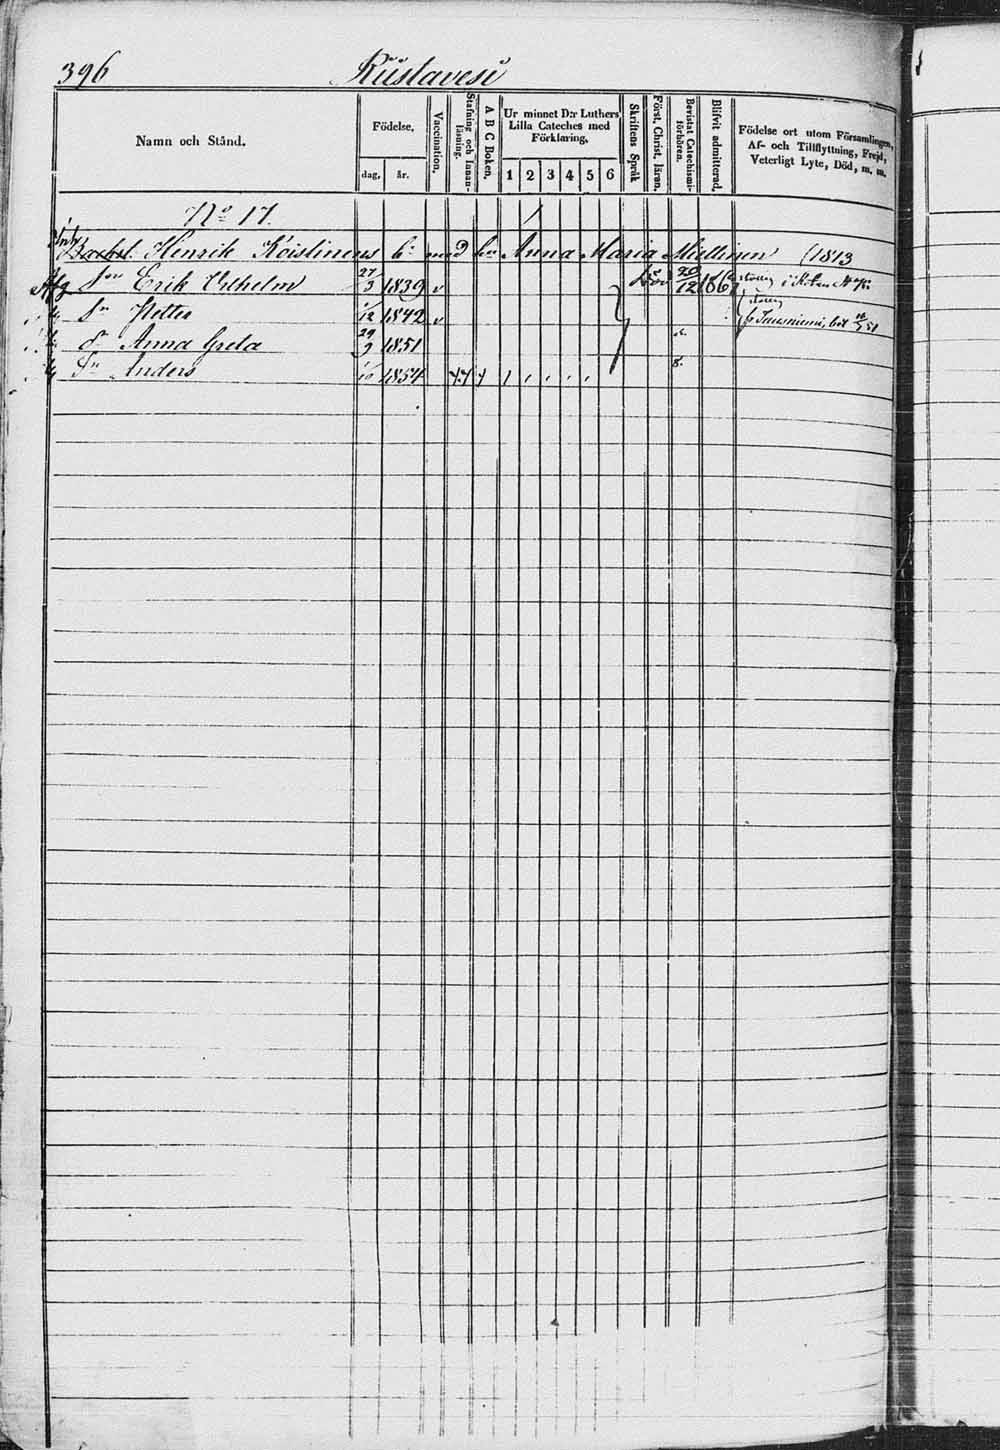 396 Riistavesi
Namn och Stånd.
Födelse,
dag.
år.
Vaccination.
Stafning och Innan-
läsning.
A B C Boken.
Ur minnet D:r Luthers
Lilla Cateches med
Förklaring.
1 2 3 4 5 6
Skriftens Språk
Först. Christ. läran.
Bevistat Catechismi-
förhören.
Blifvit admitterad.
Födelse ort utom Församlingen,
Af- och Tillflyttning, Frejd,
Veterligt Lyte, Död, m. m.
No 17.
Henrik Koistinens med Anna Maria Miettinen 1813
Son Erik Vilhelm 27/3 1839 v Död 20/12 1867 i
Sn Petter 1/12 1842 v
dr Anna Greta 29/9 1851
Sn Anders 1/10 1854